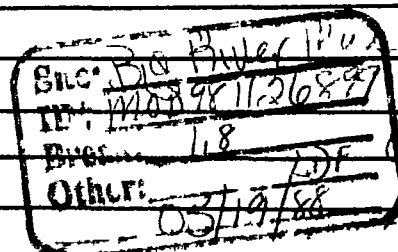 Site: Big River
ID#: MOD981126899
Break: 1.8
Other: LDF
03/19/88